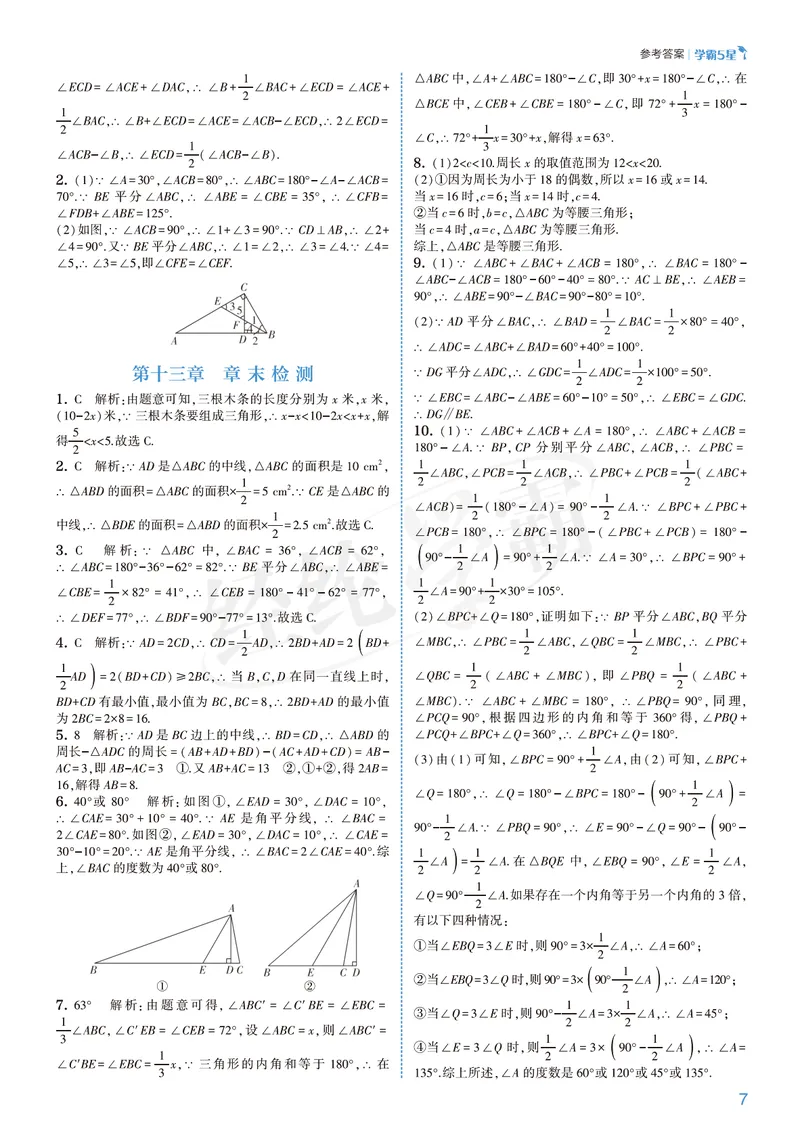 参考答案 学霸5星
∠ECD=∠ACE+∠DAC,∴ ∠B+1/2∠BAC+∠ECD=∠ACE+
1/2∠BAC,∴ ∠B+∠ECD=∠ACE=∠ACB−∠ECD,∴ 2∠ECD=
∠ACB−∠B,∴ ∠ECD=1/2(∠ACB−∠B).
2. (1)∵ ∠A=30°,∠ACB=80°,∴ ∠ABC=180°−∠A−∠ACB=
70°.∵ BE 平分∠ABC,∴ ∠ABE=∠CBE=35°,∴ ∠CFB=
∠FDB+∠ABE=125°.
(2)如图,∵ ∠ACB=90°,∴ ∠1+∠3=90°.∵ CD⊥AB,∴ ∠2+
∠4=90°.又∵ BE 平分∠ABC,∴ ∠1=∠2,∴ ∠3=∠4.∵ ∠4=
∠5,∴ ∠3=∠5,即∠CFE=∠CEF.
C
E 3 5
F 4 1
A D 2 B
第十三章 章末检测
1. C 解析:由题意可知,三根木条的长度分别为 x 米,x 米,
(10−2x)米,∵ 三根木条要组成三角形,∴ x−x<10−2x<x+x,解
得 5/2<x<5.故选 C.
2. C 解析:∵ AD 是△ABC 的中线,△ABC 的面积是 10 cm²,
∴ △ABD 的面积=△ABC 的面积×1/2=5 cm².∵ CE 是△ABC 的
中线,∴ △BDE 的面积=△ABD 的面积×1/2=2.5 cm².故选 C.
3. C 解析:∵ △ABC 中,∠BAC=36°,∠ACB=62°,
∴ ∠ABC=180°−36°−62°=82°.∵ BE 平分∠ABC,∴ ∠ABE=
∠CBE=1/2×82°=41°,∴ ∠CEB=180°−41°−62°=77°,
∴ ∠DEF=77°,∴ ∠BDF=90°−77°=13°.故选 C.
4. C 解析:∵ AD=2CD,∴ CD=1/2AD,∴ 2BD+AD=2(BD+
1/2AD)=2(BD+CD)≥2BC,∴ 当 B,C,D 在同一直线上时,
BD+CD 有最小值,最小值为 BC,BC=8,∴ 2BD+AD 的最小值
为 2BC=2×8=16.
5. 8 解析:∵ AD 是 BC 边上的中线,∴ BD=CD,∴ △ABD 的
周长−△ADC 的周长=(AB+AD+BD)−(AC+AD+CD)=AB−
AC=3,即 AB−AC=3 ①.又 AB+AC=13 ②,①+②,得 2AB=
16,解得 AB=8.
6. 40°或 80° 解析:如图①,∠EAD=30°,∠DAC=10°,
∴ ∠CAE=30°+10°=40°.∵ AE 是角平分线,∴ ∠BAC=
2∠CAE=80°.如图②,∠EAD=30°,∠DAC=10°,∴ ∠CAE=
30°−10°=20°.∵ AE 是角平分线,∴ ∠BAC=2∠CAE=40°.综
上,∠BAC 的度数为 40°或 80°.
A
B E D C
①
A
B E C D
②
7. 63° 解析:由题意可得,∠ABC′=∠C′BE=∠EBC=
1/3∠ABC,∠C′EB=∠CEB=72°,设∠ABC=x,则∠ABC′=
∠C′BE=∠EBC=1/3x,∵ 三角形的内角和等于 180°,∴ 在
△ABC 中,∠A+∠ABC=180°−∠C,即 30°+x=180°−∠C,∴ 在
△BCE 中,∠CEB+∠CBE=180°−∠C,即 72°+1/3x=180°−
∠C,∴ 72°+1/3x=30°+x,解得 x=63°.
8. (1)2<c<10.周长 x 的取值范围为 12<x<20.
(2)①因为周长为小于 18 的偶数,所以 x=16 或 x=14.
当 x=16 时,c=6;当 x=14 时,c=4.
②当 c=6 时,b=c,△ABC 为等腰三角形;
当 c=4 时,a=c,△ABC 为等腰三角形.
综上,△ABC 是等腰三角形.
9. (1)∵ ∠ABC+∠BAC+∠ACB=180°,∴ ∠BAC=180°−
∠ABC−∠ACB=180°−60°−40°=80°.∵ AC⊥BE,∴ ∠AEB=
90°,∴ ∠ABE=90°−∠BAC=90°−80°=10°.
(2)∵ AD 平分∠BAC,∴ ∠BAD=1/2∠BAC=1/2×80°=40°,
∴ ∠ADC=∠ABC+∠BAD=60°+40°=100°.
∵ DG 平分∠ADC,∴ ∠GDC=1/2∠ADC=1/2×100°=50°.
∵ ∠EBC=∠ABC−∠ABE=60°−10°=50°,∴ ∠EBC=∠GDC.
∴ DG∥BE.
10. (1)∵ ∠ABC+∠ACB+∠A=180°,∴ ∠ABC+∠ACB=
180°−∠A.∵ BP,CP 分别平分∠ABC,∠ACB,∴ ∠PBC=
1/2∠ABC,∠PCB=1/2∠ACB,∴ ∠PBC+∠PCB=1/2(∠ABC+
∠ACB)=1/2(180°−∠A)=90°−1/2∠A.∵ ∠BPC+∠PBC+
∠PCB=180°,∴ ∠BPC=180°−(∠PBC+∠PCB)=180°−
(90°−1/2∠A)=90°+1/2∠A.∵ ∠A=30°,∴ ∠BPC=90°+
1/2∠A=90°+1/2×30°=105°.
(2)∠BPC+∠Q=180°,证明如下:∵ BP 平分∠ABC,BQ 平分
∠MBC,∴ ∠PBC=1/2∠ABC,∠QBC=1/2∠MBC,∴ ∠PBC+
∠QBC=1/2(∠ABC+∠MBC),即∠PBQ=1/2(∠ABC+
∠MBC).∵ ∠ABC+∠MBC=180°,∴ ∠PBQ=90°,同理,
∠PCQ=90°,根据四边形的内角和等于 360°得,∠PBQ+
∠PCQ+∠BPC+∠Q=360°,∴ ∠BPC+∠Q=180°.
(3)由(1)可知,∠BPC=90°+1/2∠A,由(2)可知,∠BPC+
∠Q=180°,∴ ∠Q=180°−∠BPC=180°−(90°+1/2∠A)=
90°−1/2∠A.∵ ∠PBQ=90°,∴ ∠E=90°−∠Q=90°−(90°−
1/2∠A)=1/2∠A.在△BQE 中,∠EBQ=90°,∠E=1/2∠A,
∠Q=90°−1/2∠A.如果存在一个内角等于另一个内角的 3 倍,
有以下四种情况:
①当∠EBQ=3∠E 时,则 90°=3×1/2∠A,∴ ∠A=60°;
②当∠EBQ=3∠Q 时,则 90°=3×(90°−1/2∠A),∴ ∠A=120°;
③当∠Q=3∠E 时,则 90°−1/2∠A=3×1/2∠A,∴ ∠A=45°;
④当∠E=3∠Q 时,则1/2∠A=3×(90°−1/2∠A),∴ ∠A=
135°.综上所述,∠A 的度数是 60°或 120°或 45°或 135°.
7